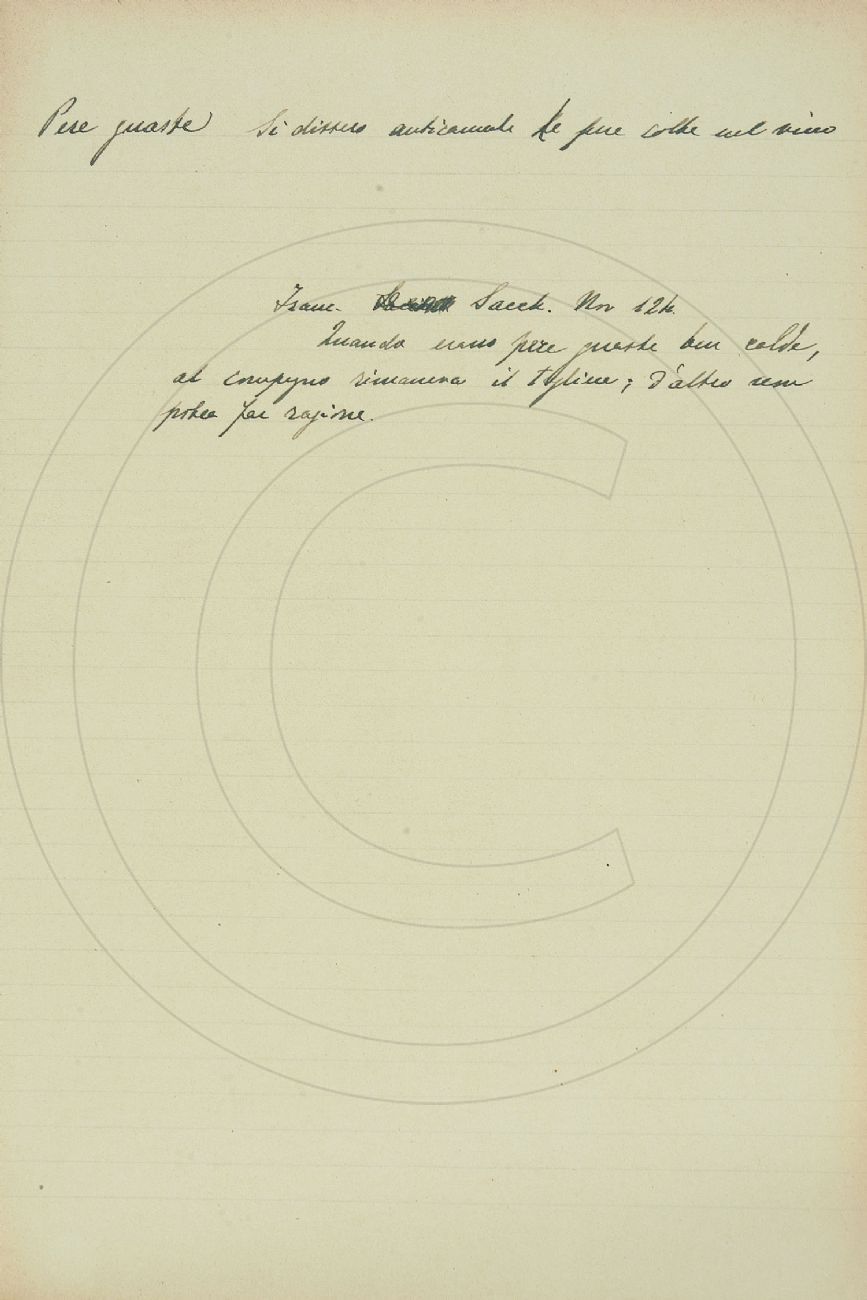 Pere guaste Si dissero anticamente le pere cotte nel vino
Franc. Sacch. Nov 124
Quando erano pere guaste ben calde,
al compagno rimaneva il tagliere; d'altro non
potea far ragione.